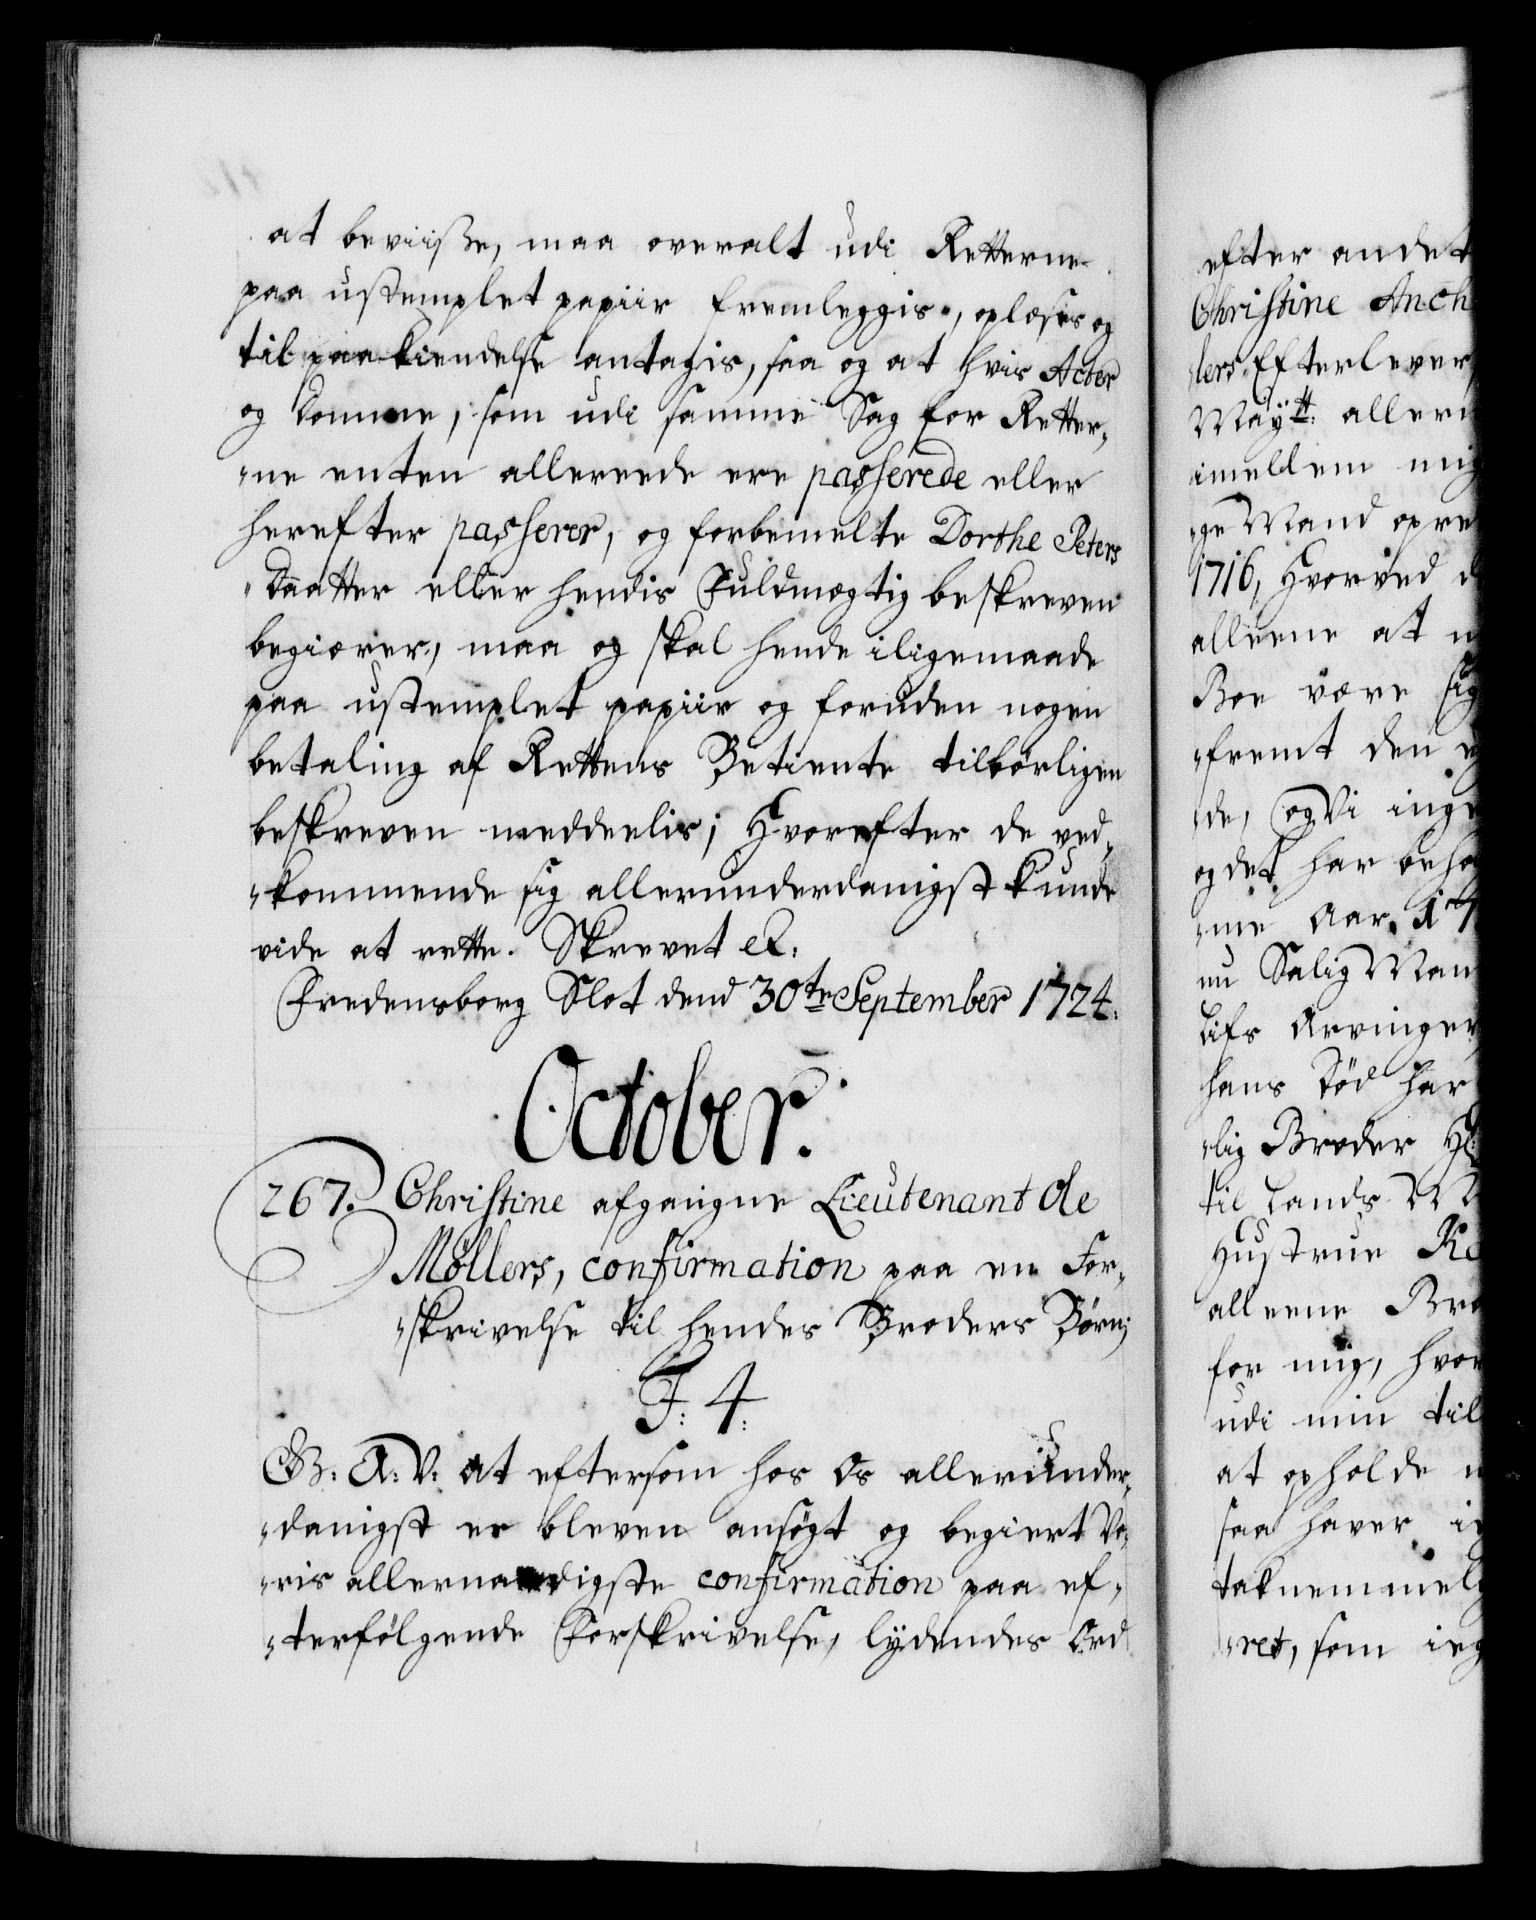 at beviiße, maa overalt udi Retterne
paa ustemplet papiir fremleggis, oplæsis og
til paakiendelse antagis, saa og at hvis Acter
og Domme, som udi samme Sag for Retter-
ne enten allereede ere passerede eller
herefter passerer, og forbemelte Dorthe Peters
Daatter eller hendis Fuldmægtig beskreven
begiærer, maa og skal hende iligemaade
paa ustemplet papiir og foruden nogen
betaling af Rettens Betiente tilbørligen
beskreven meddeelis; Hvorefter de ved-
kommende sig allerunderdanigst kunde
vide at rette. Skrevet etc:
Fredensborg Slot dend 30te September 1724.
October.
267. Christine afgangne Lieutenant de
Møllers, confirmation paa en For-
skrivelse til hendes Broders Børn;
F: 4.
G: A: V: at eftersom hos Os allerunder-
danigst er bleven ansøgt og begiert Vo-
ris allernaadigste confirmation paa ef-
terfølgende Forskrivelse, lydendes Ord
efter andet
Christine Anch
lers Efterlever
Maytt: allern
imellem mig
ge Mand opre
1716, Hvorved d
alleene at n
Boe være sig
fremt den e
de, og Vi inge
og det har beha
me Aar. 17
nu Salig Man
Lifs Arvinger
hans Død har
lig Broder H
til Lands M
Hustrue Ka
alleene Bro
for mig, hvor
udi min til
at opholde m
saa haver ie
taknemmelig
ret, som ieg